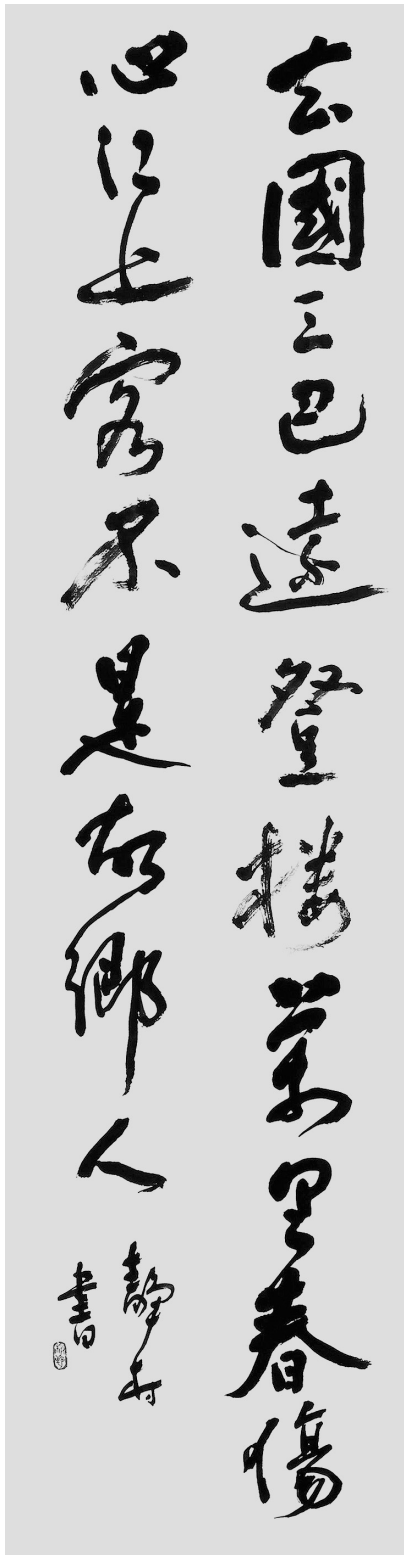 去國三巴遠登楼萬里春傷
心江上客不是故鄉人
靜村
書